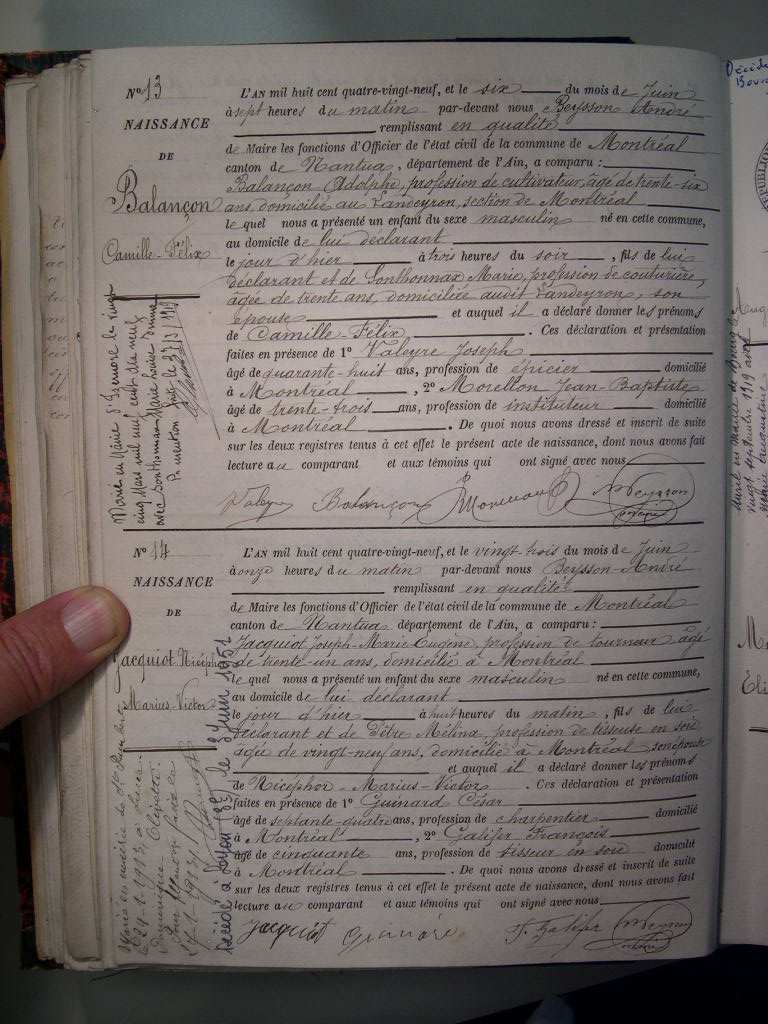 No 13
NAISSANCE
DE
Balançon
Camille-Félix
L'AN mil huit cent quatre-vingt-neuf, et le six du mois de Juin
à sept heures du matin par-devant nous Beysson André
remplissant en qualité
de Maire les fonctions d'Officier de l'état civil de la commune de Montréal
canton de Nantua, département de l'Ain, a comparu :
Balançon Adolphe, profession de cultivateur, âgé de trente-six
ans, domicilié au Landeyron, section de Montréal
le quel nous a présenté un enfant du sexe masculin né en cette commune,
au domicile de lui déclarant
le jour d'hier à trois heures du soir, fils de lui
déclarant et de Sonthonnax Marie, profession de couturière,
âgée de trente ans, domiciliée audit Landeyron, son
épouse et auquel il a déclaré donner les prénoms
de Camille-Félix. Ces déclaration et présentation
faites en présence de 1° Valeyre Joseph
âgé de quarante-huit ans, profession de épicier domicilié
à Montréal, 2° Morellon Jean-Baptiste
âgé de trente-trois ans, profession de instituteur domicilié
à Montréal. De quoi nous avons dressé et inscrit de suite
sur les deux registres tenus à cet effet le présent acte de naissance, dont nous avons fait
lecture au comparant et aux témoins qui ont signé avec nous
Balançon Beysson
Marié en Mairie d'Izernore le vingt
cinq Mars mil neuf cent dix neuf
avec Sonthonnax Marie Louise
Pr mention
No 14
NAISSANCE
DE
Jacquiot Nicéphor
Marius-Victor
L'AN mil huit cent quatre-vingt-neuf, et le vingt trois du mois de Juin
à onze heures du matin par-devant nous Beysson-André
remplissant en qualité
de Maire les fonctions d'Officier de l'état civil de la commune de Montréal
canton de Nantua, département de l'Ain, a comparu :
Jacquiot Joseph-Marie Eugène, profession de tourneur âgé
de trente-un ans, domicilié à Montréal
le quel nous a présenté un enfant du sexe masculin né en cette commune,
au domicile de lui déclarant
le jour d'hier à huit heures du matin, fils de lui
déclarant et de Pêtre Mélina, profession de tisseuse en soie
âgée de vingt-neuf ans, domiciliée à Montréal son épouse
et auquel il a déclaré donner les prénoms
de Nicéphor-Marius-Victor. Ces déclaration et présentation
faites en présence de 1° Guinard César
âgé de septante-quatre ans, profession de charpentier domicilié
à Montréal, 2° Galifer François
âgé de cinquante ans, profession de tisseur en soie domicilié
à Montréal. De quoi nous avons dressé et inscrit de suite
sur les deux registres tenus à cet effet le présent acte de naissance, dont nous avons fait
lecture au comparant et aux témoins qui ont signé avec nous
Jacquiot Guinard F. Galifer Beysson
Décédé à Lyon le 3 Juin 1951